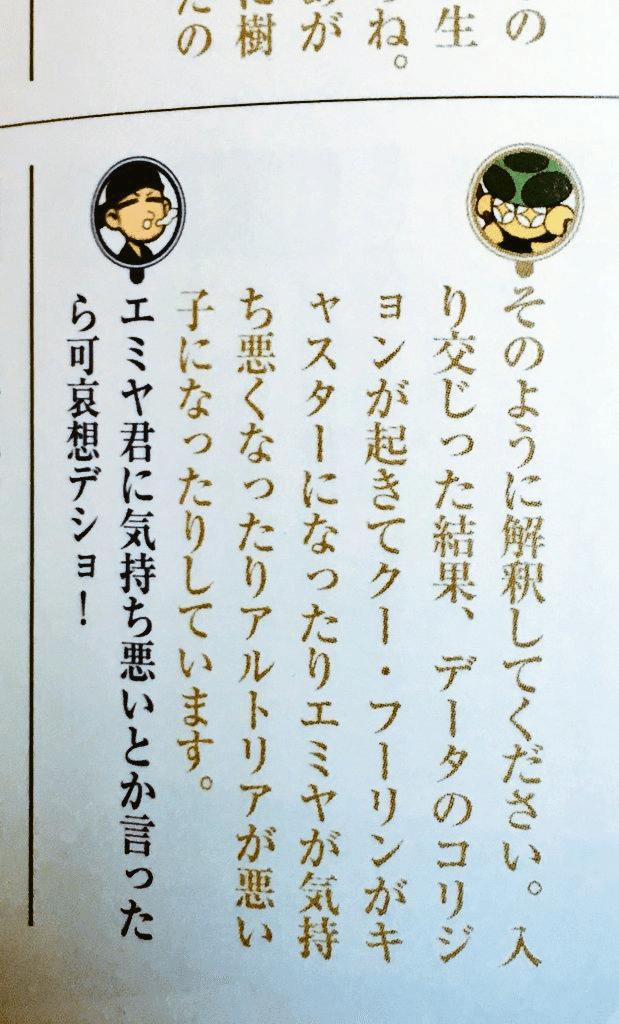 の
生
ね。
が
樹
たの
そのように解釈してください。入
り交じった結果、データのコリジ
ョンが起きてクー・フーリンがキ
ャスターになったりエミヤが気持
ち悪くなったりアルトリアが悪い
子になったりしています。
エミヤ君に気持ち悪いとか言った
ら可哀想デショ！